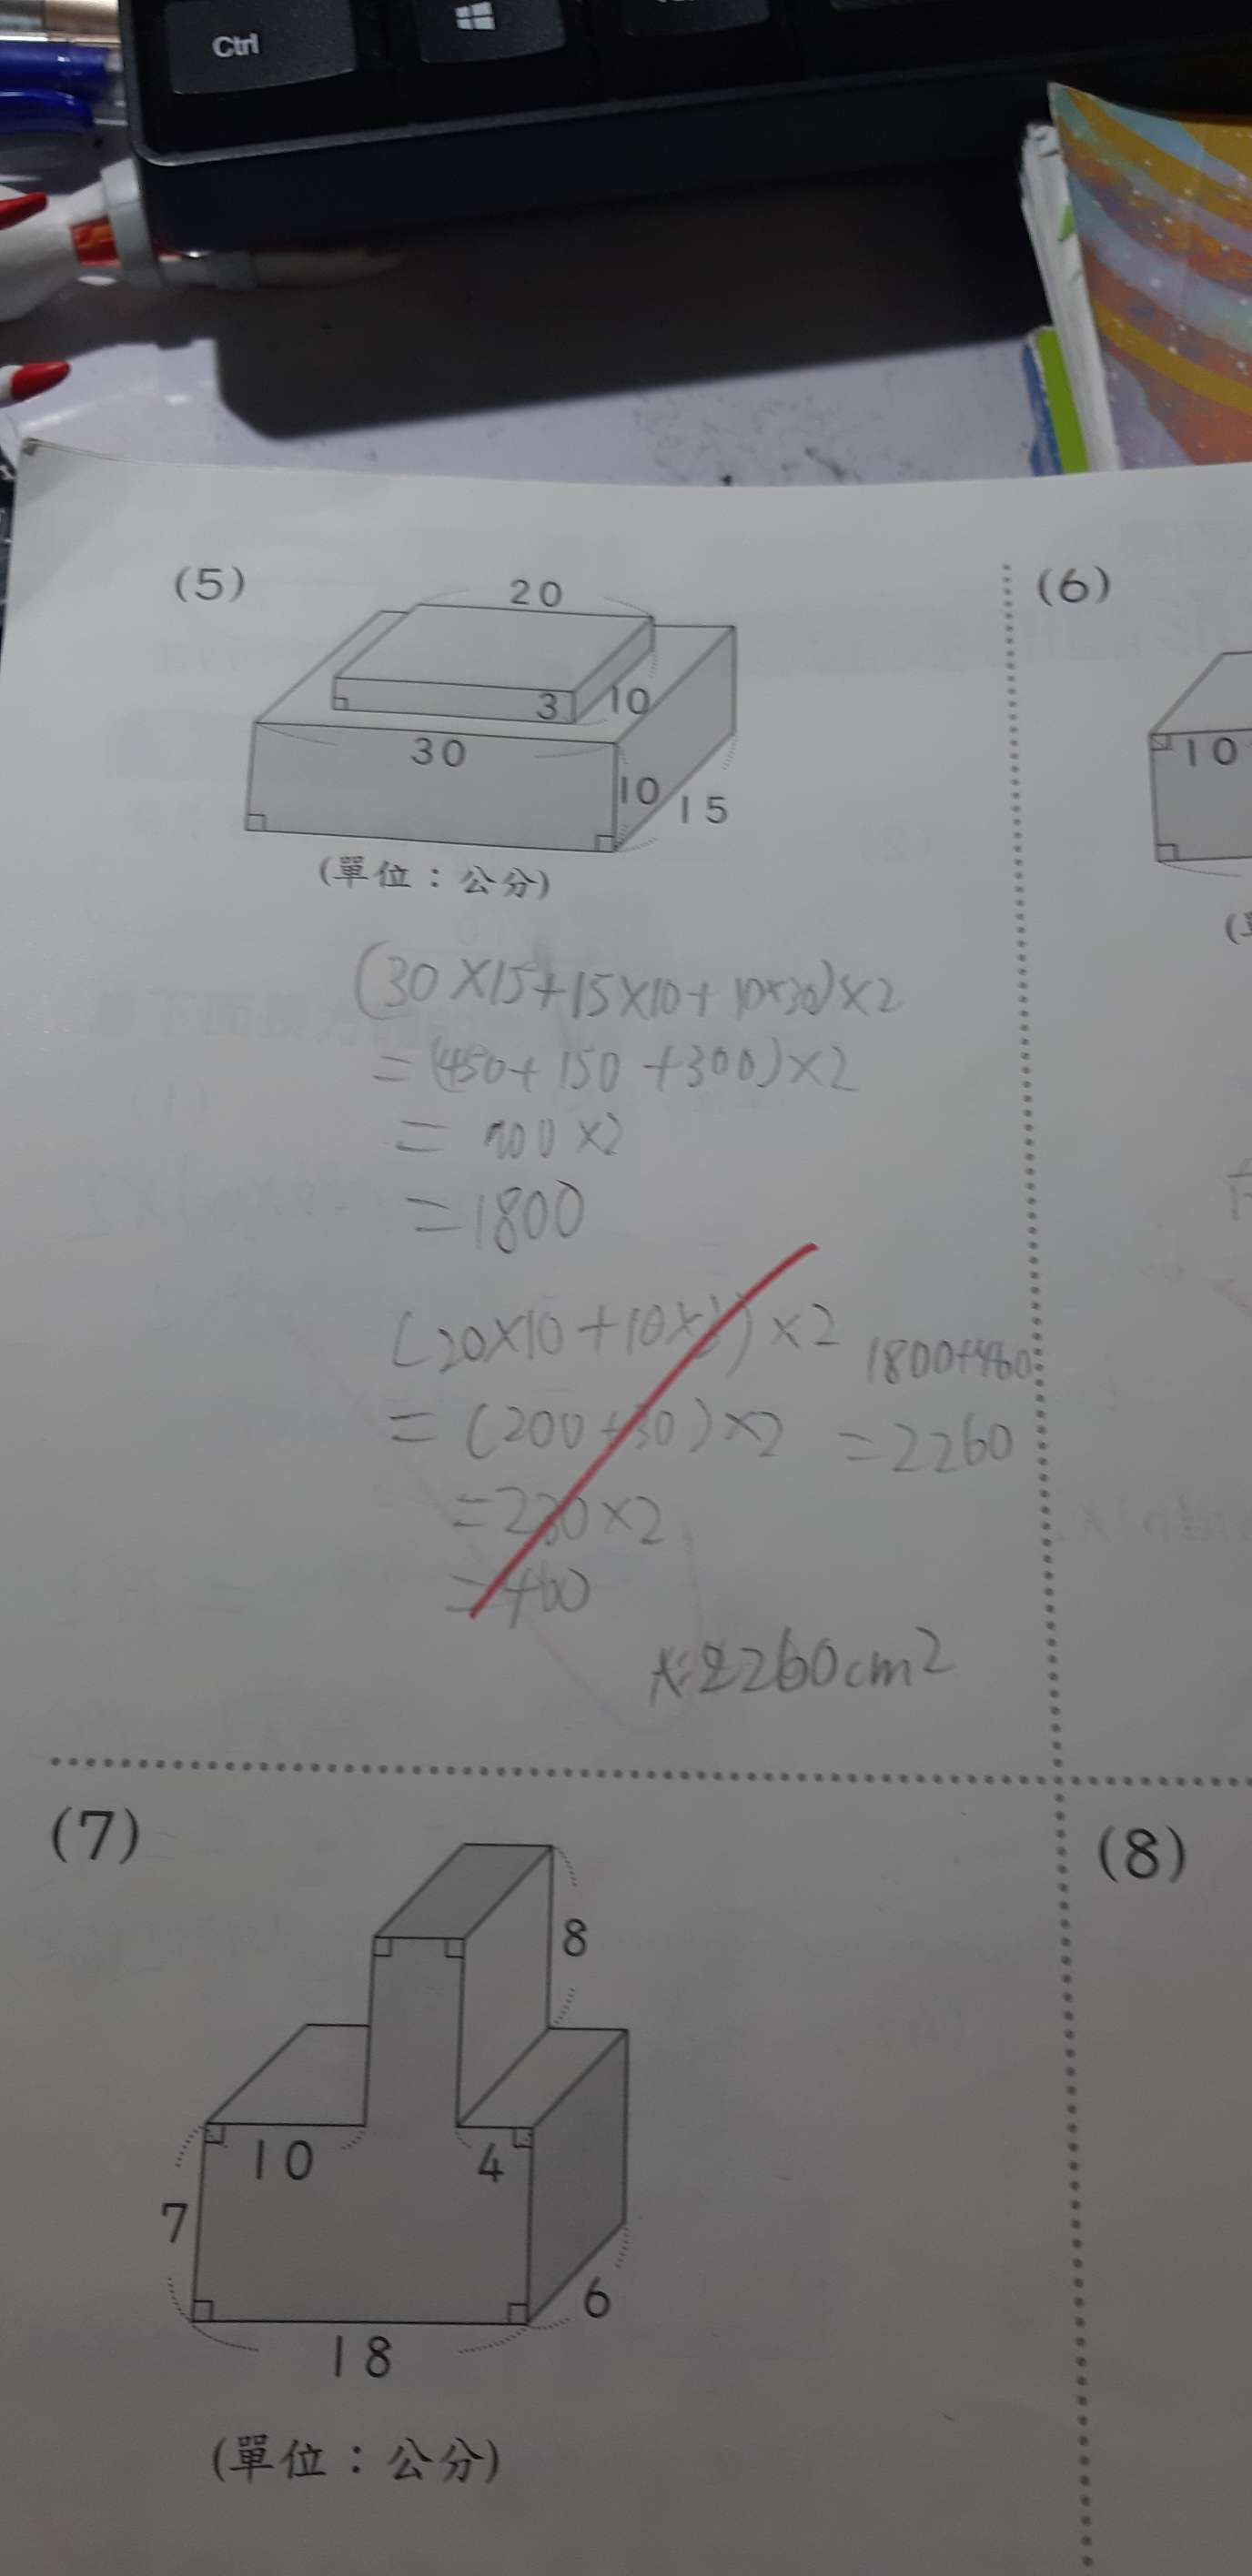 Ctrl
(5)
20
3
10
30
10
15
(單位：公分)
(30×15+15×10+10×30)×2
=(450+150+300)×2
= 900×2
=1800
(20×10+10×3)×2
1800+460
= (200+30)×2
=2260
=230×2
=460
A:2260cm²
(6)
10
(7)
8
10
4
7
6
18
(單位：公分)
(8)